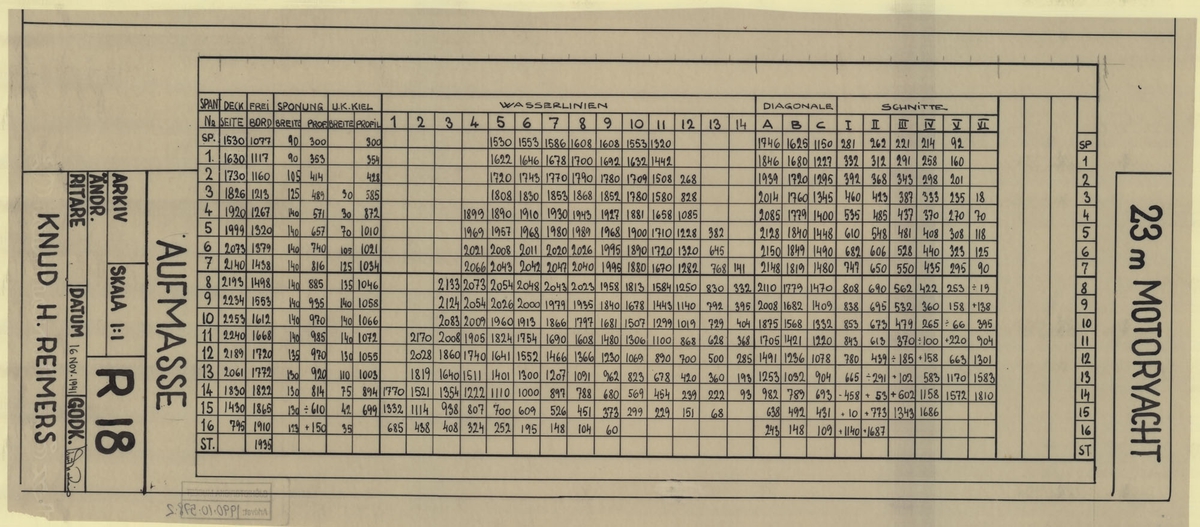 SPANT DECK FREI SPONUNG U.K. KIEL WASSERLINIEN DIAGONALE SCHNITTE
No SEITE BORD BREITE PROF BREITE PROFIL 1 2 3 4 5 6 7 8 9 10 11 12 13 14 A B C I II III IV V VI
SP. 1530 1077 90 300 300 1530 1553 1586 1608 1608 1553 1320 1746 1625 1150 281 262 221 214 92 SP
1. 1630 1117 90 353 354 1622 1646 1678 1700 1692 1632 1442 1846 1680 1227 332 312 291 258 160 1
2 1730 1160 105 414 428 1720 1743 1770 1790 1780 1709 1508 268 1939 1720 1295 392 368 343 298 201 2
3 1826 1213 125 489 30 585 1808 1830 1853 1868 1852 1780 1580 828 2014 1760 1345 460 423 387 333 235 18 3
4 1920 1267 140 571 30 872 1899 1890 1910 1930 1943 1927 1881 1658 1085 2085 1779 1400 535 485 437 370 270 70 4
5 1999 1320 140 657 70 1010 1969 1957 1968 1980 1989 1968 1900 1710 1228 382 2128 1840 1448 610 548 481 408 308 118 5
6 2073 1379 140 740 109 1021 2021 2008 2011 2020 2026 1995 1890 1720 1320 645 2150 1849 1490 682 606 528 440 323 125 6
7 2140 1438 140 816 125 1034 2066 2043 2042 2047 2040 1995 1880 1670 1282 768 141 2148 1819 1480 747 650 550 435 295 90 7
8 2193 1498 140 885 135 1046 2133 2073 2054 2048 2043 2023 1958 1813 1584 1250 830 332 2110 1779 1470 808 690 562 422 253 ÷19 8
9 2234 1553 140 935 140 1058 2124 2054 2026 2000 1979 1935 1840 1678 1443 1140 742 395 2008 1682 1409 838 695 532 360 158 +138 9
10 2253 1612 140 970 140 1066 2083 2009 1960 1913 1866 1797 1681 1507 1299 1019 729 404 1875 1568 1332 853 673 479 265 ÷66 395 10
11 2240 1668 140 985 140 1072 2170 2008 1905 1824 1754 1690 1608 1480 1306 1100 868 628 368 1705 1421 1220 843 613 370 ÷100 +220 904 11
12 2189 1720 135 970 130 1055 2028 1860 1740 1641 1552 1466 1366 1230 1069 890 700 500 285 1491 1236 1078 780 439 ÷185 +158 663 1301 12
13 2061 1772 130 920 110 1003 1819 1640 1511 1401 1300 1207 1091 962 823 678 420 360 193 1253 1032 904 665 ÷291 +102 583 1170 1583 13
14 1830 1822 130 814 75 894 1770 1521 1354 1222 1110 1000 897 788 680 569 454 239 222 93 982 789 693 ÷458 +53 +602 1158 1572 1810 14
15 1430 1865 130 ÷610 42 699 1332 1114 938 807 700 609 526 451 373 299 229 151 68 638 492 431 +10 +773 1343 1686 15
16 795 1910 123 +150 35 685 438 408 324 252 195 148 104 60 243 148 109 +1140 +1687 16
ST. 1935 ST
23 m MOTORYACHT
AUFMASSE
ARKIV
ÄNDR.
RITARE
SKALA 1:1
DATUM 16 NOV. 1941
GODK.
R 18
KNUD H. REIMERS
1990-10-578:2